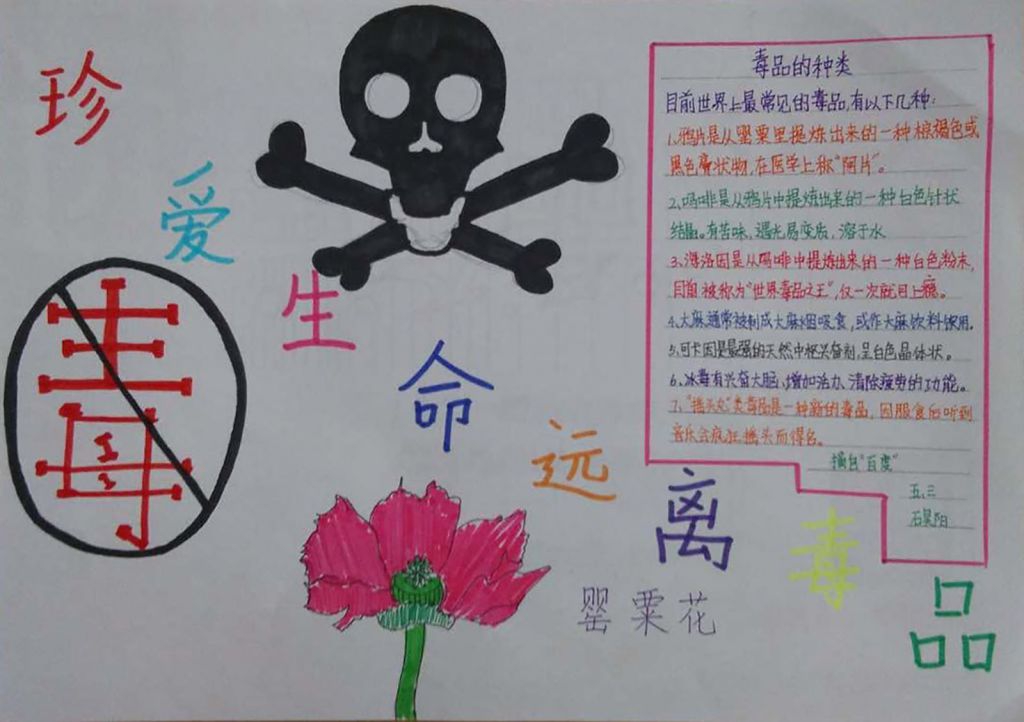 珍爱生命远离毒品
毒
罂粟花
毒品的种类
目前世界上最常见的毒品,有以下几种:
1、鸦片是从罂粟里提炼出来的一种棕褐色或
黑色膏状物,在医学上称“阿片”。
2、吗啡是从鸦片中提炼出来的一种白色针状
结晶。有苦味,遇光易变质,溶于水
3、海洛因是从吗啡中提炼出来的一种白色粉末,
目前被称为“世界毒品之王”,仅一次就目上瘾。
4、大麻通常被制成大麻烟吸食,或作大麻饮料饮用。
5、可卡因是最强的天然中枢兴奋剂,呈白色晶体状。
6、冰毒有兴奋大脑、增加活力、清除疲劳的功能。
7、“摇头丸”类毒品是一种新的毒品,因服食后听到
音乐会疯狂摇头而得名。
摘自“百度”
五、三
石昊阳